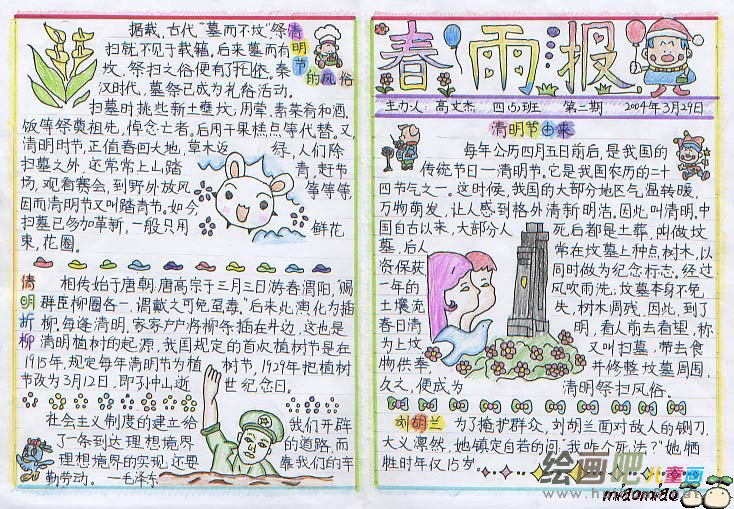 据载,古代“墓而不坟”祭
扫就不见于载籍,后来墓而有
坟,祭扫之俗便有了托依,秦
汉时代,墓祭已成为礼俗活动。
清明节的风俗
扫墓时挑些新土壅坟,用荤、素菜肴和酒、
饭等祭奠祖先,悼念亡者。后用干果糕点等代替。又
清明时节,正值春回大地,草木返绿,人们除
扫墓之外,还常常上山踏青,赶节
场,观看赛会,到野外放风筝等等,
因而清明节又叫踏青节。如今,
扫墓已多加革新,一般只用鲜花
束,花圈。
清明折柳
相传始于唐朝,唐高宗于三月三日游春渭阳,“赐
群臣柳圈各一,谓戴之可免虿毒。”后来此演化为插
柳,每逢清明,家家户户将柳条插在井边,这也是
清明植树的起源,我国规定的首次植树节是在
1915年,规定每年清明节为植树节,1929年把植树
节改为3月12日,即孙中山逝世纪念日。
社会主义制度的建立给我们开辟
了一条到达理想境界的道路,而
理想境界的实现,还要靠我们的辛
勤劳动。 —毛泽东
春雨报
主办人:高文杰 四(5)班 第二期 2009年3月29日
清明节由来
每年公历四月五日前后,是我国的
传统节日—清明节。它是我国农历的二十
四节气之一。这时候,我国的大部分地区气温转暖,
万物萌发,让人感到格外清新明洁。因此叫清明。中
国自古以来,大部分人死后都是土葬,叫做坟
墓,后人常在坟墓上种点树木,以
资保获同时做为纪念标志。经过
一年的风吹雨洗,坟墓本身不免
土壤流失,树木凋残。因此,到了
春日清明,看人前去看望,称
为上坟又叫扫墓,带去食
物供奉,并修整坟墓周围,
久之,便成为清明祭扫风俗。
刘胡兰
为了掩护群众,刘胡兰面对敌人的铡刀,
大义凛然,她镇定自若的问“我咋个死法?”她牺
牲时年仅15岁。
绘画吧 儿童画
miaomiao